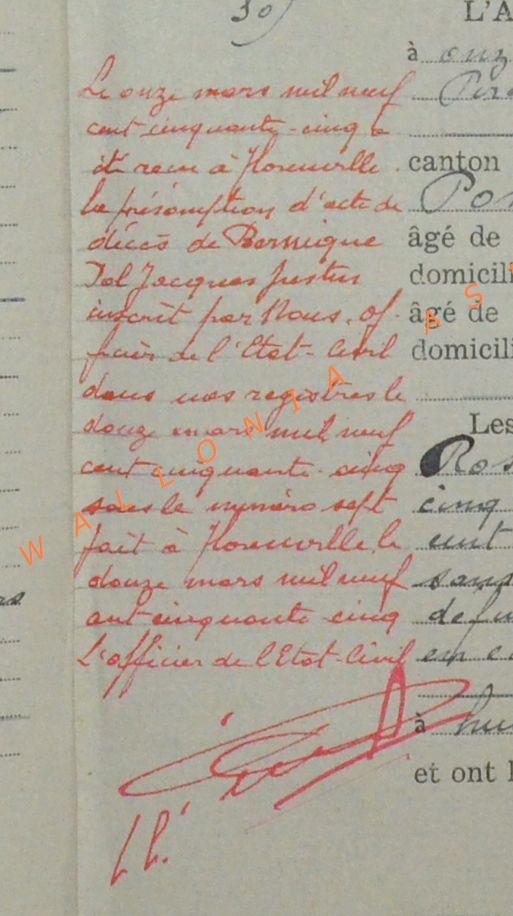 30)
L'A
à onz
Le onze mars mil neuf
cent cinquante-cinq a
été recu à Florenville
canton
la présomption d'acte de
décès de Bernique
âgé de
Jol Jacques Justin
domicili
inscrit par Nous, of-
âgé de
ficier de l'Etat-Civil
domicili
dans nos registres le
douze mars mil neuf
Les
cent cinquante-cinq
Ros
sous le numéro sept
cinq
fait à Florenville, le
douze mars mil neuf
cent cinquante cinq
L'officier de l'Etat-Civil
à hui
et ont l
WALLONIA AS